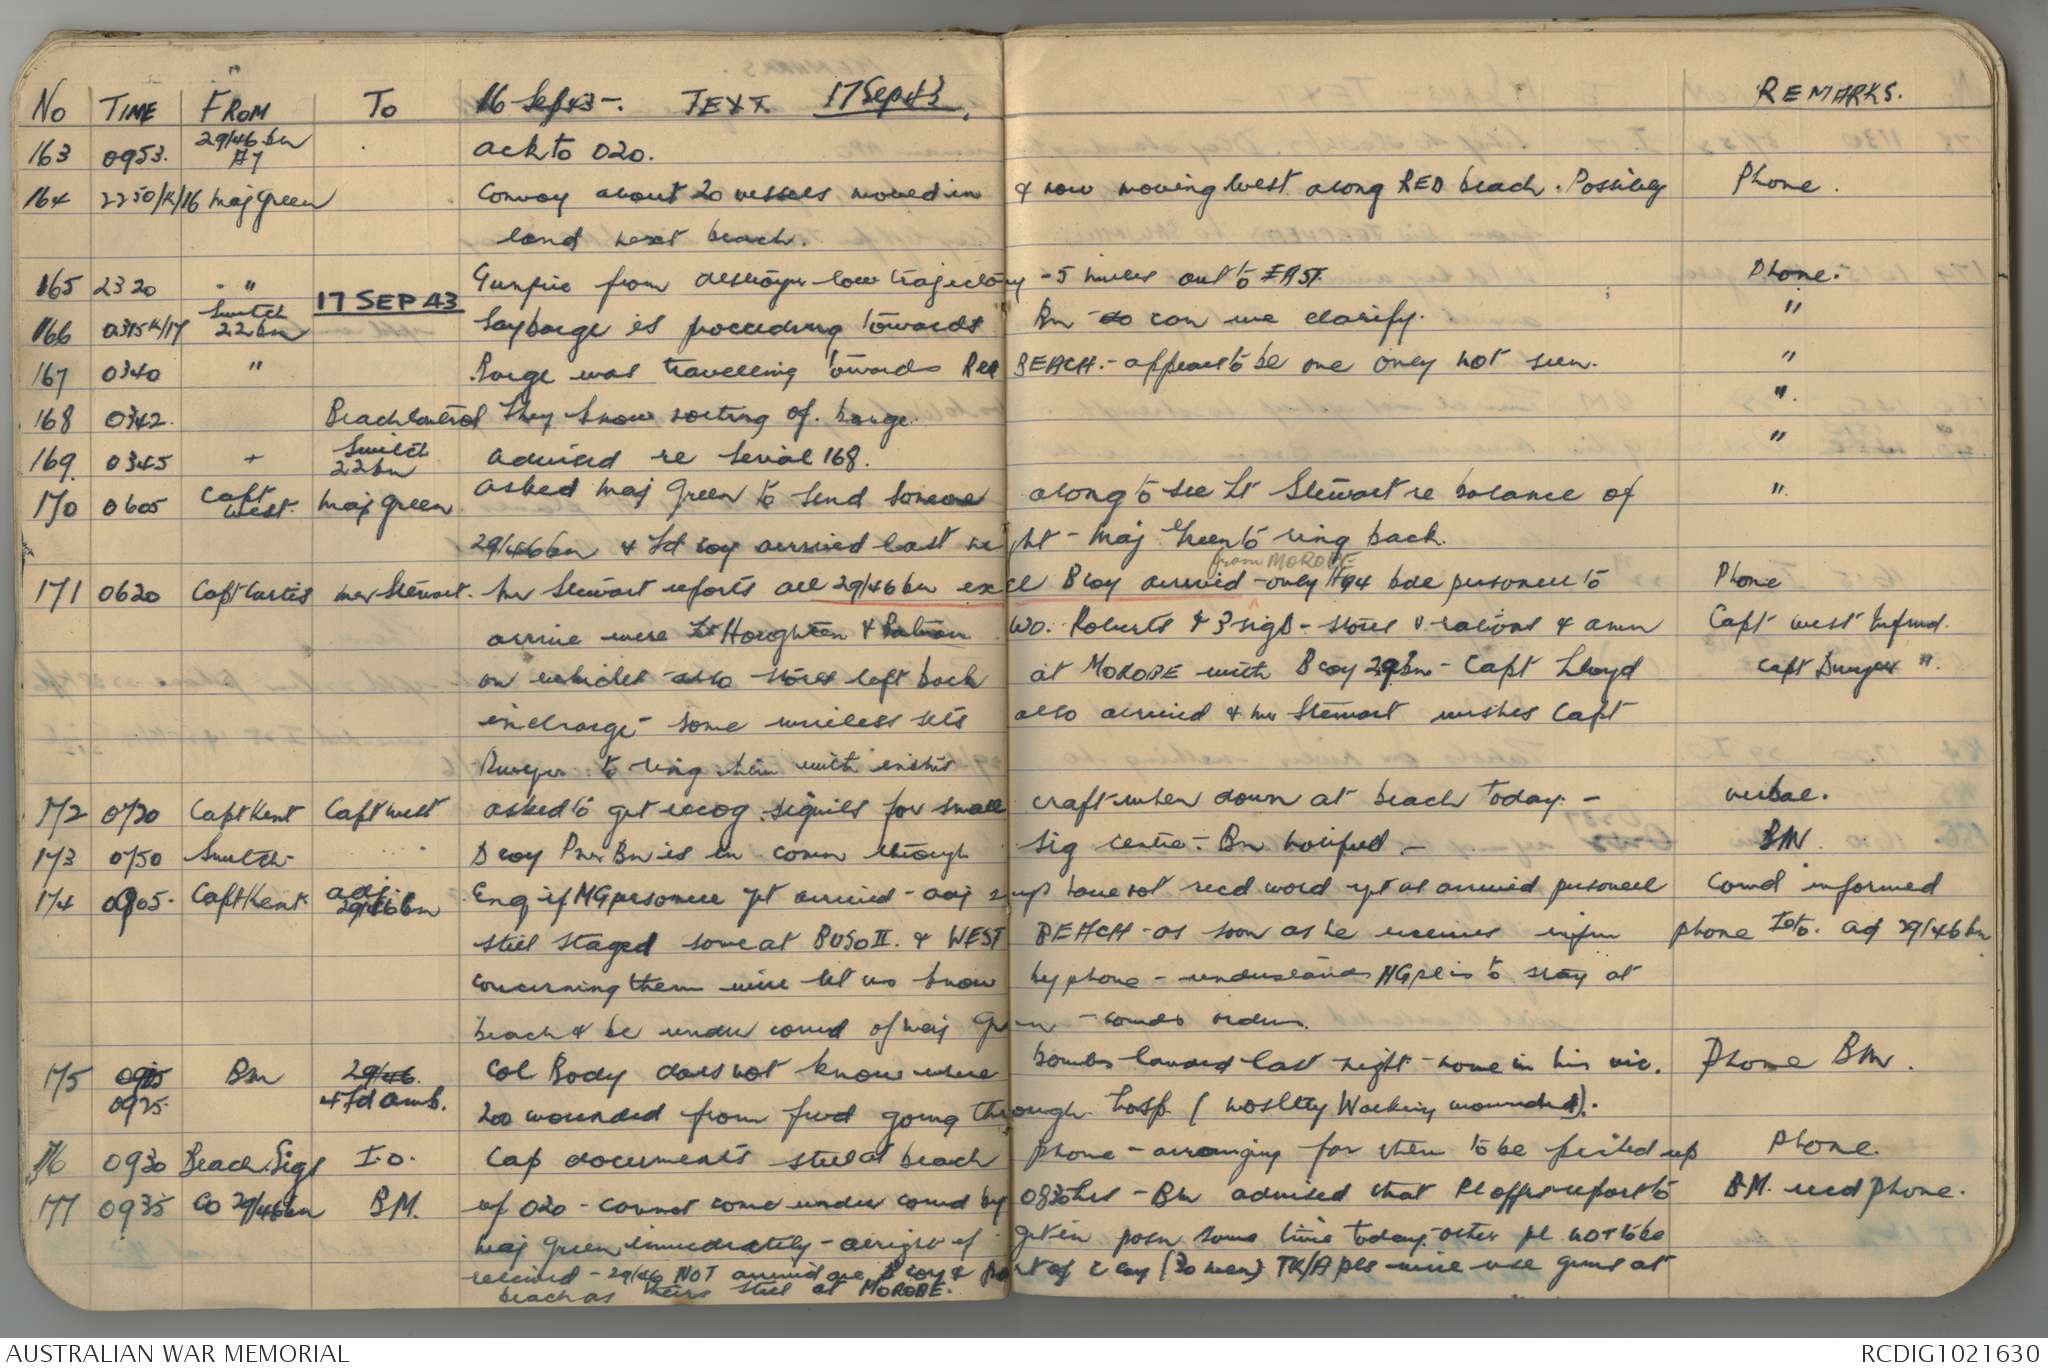 No TIME FROM To 16 Sep 43 -. TEXT 17 Sep 43 REMARKS.
163 0953. 29/46 bn A7 ack to 020.
164 2250/K/16 Maj Green Convoy about 20 vessels moved in & now moving West along RED beach. Possibly Phone.
land next beach.
165 2320 " Gunfire from destroyer low trajectory - 5 miles out to EAST. Phone.
17 SEP 43
166 0315K/17 Switch 22 bn Say barge is proceeding towards Bn - can we clarify. "
167 0340 " Barge was travelling towards Red BEACH. - appears to be one only not seen. "
168 0342. Beach Control They know of barge. "
169 0345 + Switch 22 bn advised re Serial 168. "
170 0605 Capt West. Maj Green asked Maj Green to send someone along to see Lt Stewart re balance of "
29/46 bn & Fd coy arrived last night - Maj Green to ring back.
171 0620 Capt Curtis Mr Stewart. Mr Stewart reports all 29/46 bn excl B coy arrived from MOROBE - only HQ 4 bde personnel to Phone
arrive were Lt Houghton & WO. Roberts & 3 sigs - stores & rations & amn Capt West Infmd.
on vehicles also stores left back at MOROBE with B coy 29 bn - Capt Lloyd Capt Dwyer ".
in charge - some wireless sets also arrived & Mr Stewart wishes Capt
Dwyer to ring him with instns
172 0720 Capt Kent Capt West asked to get recog. signals for small craft when down at beach today. - verbal.
173 0750 Switch - D coy Pnr Bn is in comm through Sig centre - Bn notified - BM.
174 0905. Capt Kent adj 29/46 bn Enq if MG personnel yet arrived - adj says have not recd word yet as arrived personnel Comd informed
still staged some at BUSO II. & WEST BEACH - as soon as he receives infm phone to. adj 29/46 bn
concerning them will let us know by phone - understands MG pl is to stay at
beach & be under comd of Maj Green - comds orders.
175 0925 0925 BM 29/46. 4 Fd amb. Col Body does not know where bombs landed last night - none in his vic. Phone BM.
200 wounded from fwd going through hosp (mostly Walking wounded).
176 0930 Beach Sigs I.O. Cap documents still at beach phone - arranging for them to be picked up Phone.
177 0935 CO 29/46 bn BM. ref 020 - cannot come under comd by 0830hrs - BM advised that Pl offrs report to BM. recd phone.
Maj Green immediately - alright if get in posn some time today. other pl NOT to be
received - 29/46 NOT arrived are B coy & part of C coy (30 men) TK/A pls will use guns at
beach as theirs still at MOROBE.
AUSTRALIAN WAR MEMORIAL RCDIG1021630